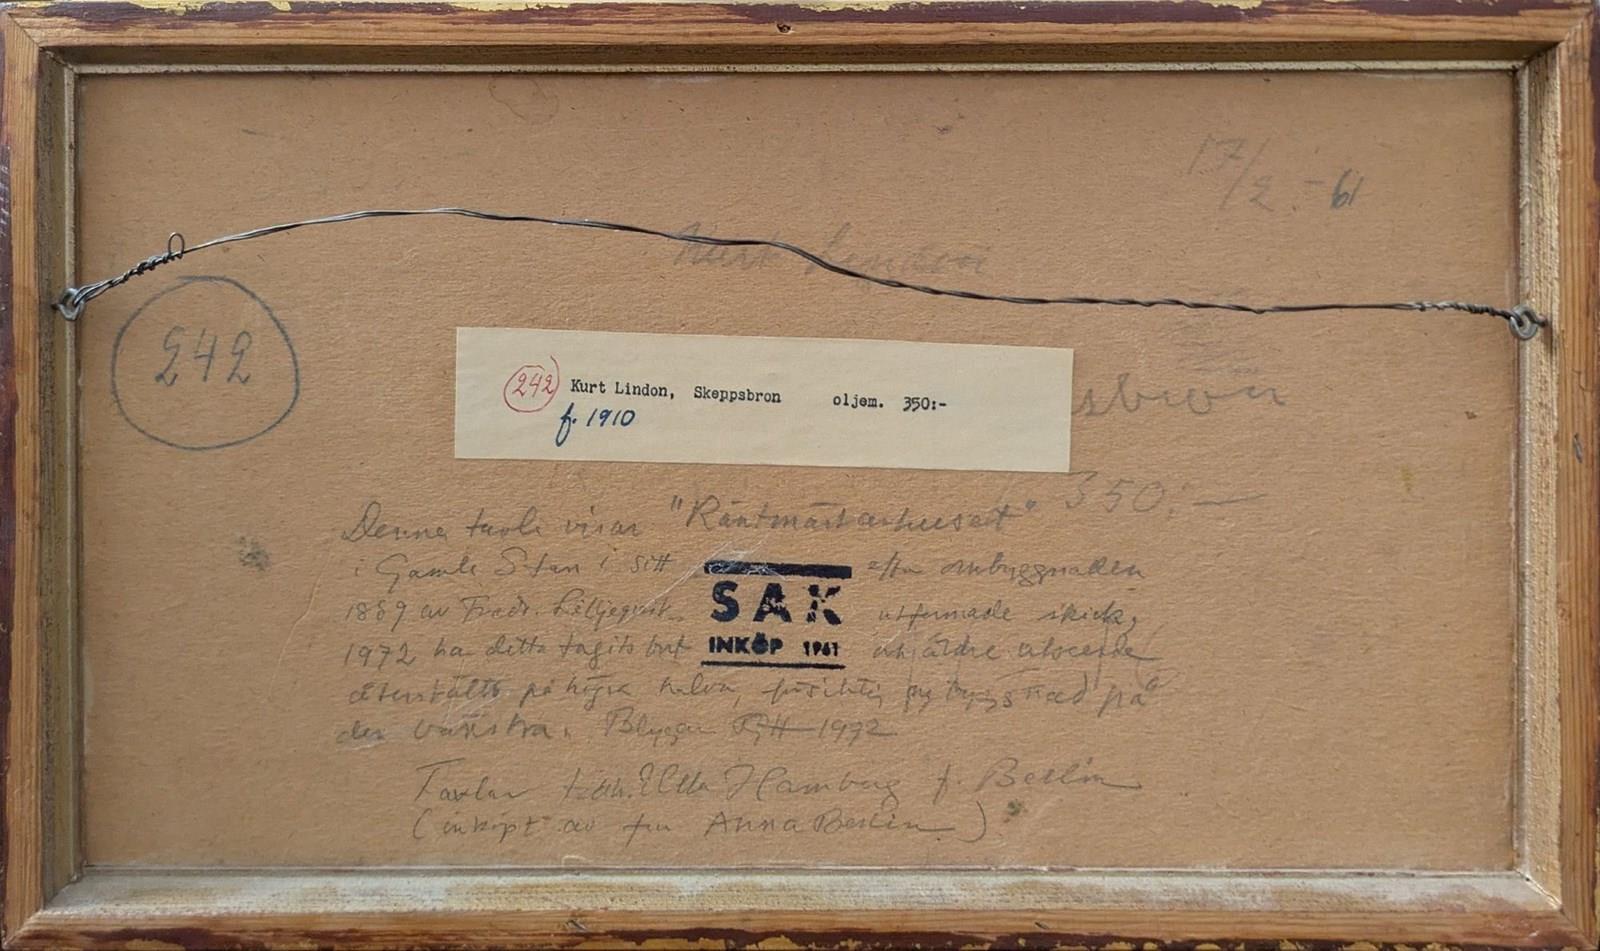 17/2 - 61
Kurt Lindon
242
242 Kurt Lindon, Skeppsbron oljem. 350:-
f. 1910
sbron
350:-
Denna tavla visar "Räntmästarhuset"
i Gamla Stan i sitt efter ombyggnaden
1889 av Fredr. Liljeqvist utformade skick,
1972 har detta tagits bort och äldre utseende
återställts på högra halvan, nybyggnad på
den vänstra. 1972
SAK
INKÖP 1961
Tavlan Hamburg f. Berlin
(inköpt av fru Anna Berlin)